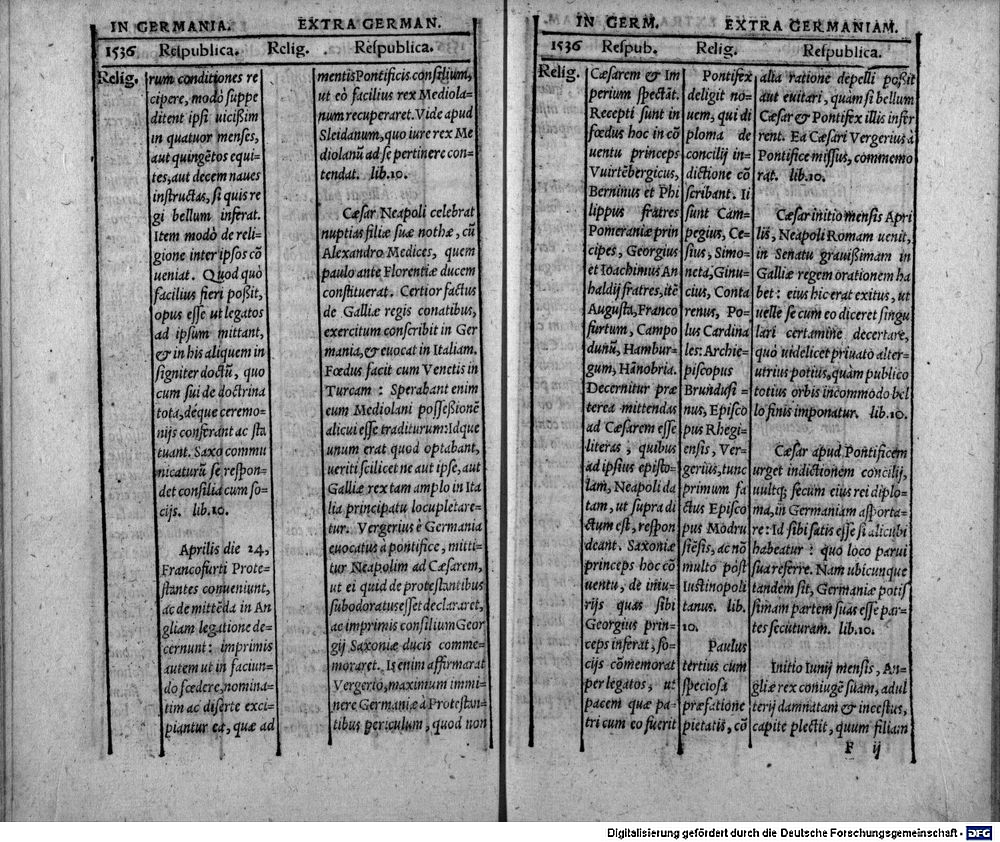 IN GERMANIA. EXTRA GERMAN.
1536 Respublica. Relig. Respublica.
Relig.
rum conditiones re
cipere, modò suppe
ditent ipsi uicißim
in quatuor menses,
aut quingẽtos equi-
tes, aut decem naues
instructas, si quis re
gi bellum inferat.
Item modò de reli-
gione inter ipsos cõ
ueniat. Quod quò
facilius fieri poßit,
opus esse ut legatos
ad ipsum mittant,
& in his aliquem in
signiter doctũ, quo
cum sui de doctrina
tota, deque ceremo-
nijs conferant ac sta
tuant. Saxo commu
nicaturũ se respon-
det consilia cum so-
cijs. lib.10.
Aprilis die 24,
Francofurti Prote-
stantes conueniunt,
ac de mittẽda in An
gliam legatione de-
cernunt: imprimis
autem ut in faciun-
do fœdere, nomina-
tim ac diserte exci-
piantur ea, quæ ad
mentis Pontificis consilium,
ut eò facilius rex Mediola-
num recuperaret. Vide apud
Sleidanum, quo iure rex Me
diolanũ ad se pertinere con-
tendat. lib.10.
Cæsar Neapoli celebrat
nuptias filiæ suæ nothæ, cũ
Alexandro Medices, quem
paulo ante Florentiæ ducem
constituerat. Certior factus
de Galliæ regis conatibus,
exercitum conscribit in Ger
mania, & euocat in Italiam.
Fœdus facit cum Venetis in
Turcam: Sperabant enim
eum Mediolani posseßionẽ
alicui esse traditurum: Idque
unum erat quod optabant,
ueriti scilicet ne aut ipse, aut
Galliæ rex tam amplo in Ita
lia principatu locupletare-
tur. Vergerius è Germania
euocatus à pontifice, mitti-
tur Neapolim ad Cæsarem,
ut ei quid de protestantibus
subodoratus esset declararet,
ac imprimis consilium Geor
gij Saxoniæ ducis comme-
moraret. Is enim affirmarat
Vergerio, maximum immi-
nere Germaniæ à Protestan-
tibus periculum, quod non
IN GERM. EXTRA GERMANIAM.
1536 Respub. Relig. Respublica.
Relig.
Cæsarem & Im
perium spectãt.
Recepti sunt in
fœdus hoc in cõ
uentu princeps
Vuirtẽbergicus,
Berninus et Phi
lippus fratres
Pomeraniæ prin
cipes, Georgius
et Ioachimus An
haldij fratres, itẽ
Augusta, Franco
furtum, Campo
dunũ, Hambur-
gum, Hãnobria.
Decernitur præ
terea mittendas
ad Cæsarem esse
literas, quibus
ad ipsius episto-
lam, Neapoli da
tam, ut supra di
ctum est, respon
deant. Saxoniæ
princeps hoc cõ
uentu, de iniu-
rijs quas sibi
Georgius prin-
ceps inferat, so-
cijs cõmemorat
per legatos, ut
pacem quæ pa-
tri cum eo fuerit
Pontifex
deligit no-
uem, qui di
ploma de
concilij in-
dictione cõ
scribant. Ii
sunt Cam-
pegius, Ce-
sius, Simo-
neta, Ginu-
cius, Conta
renus, Po-
lus Cardina
les: Archie-
piscopus
Brundusi-
nus, Episco
pus Rhegi-
ensis, Ver-
gerius, tunc
primum fa
ctus Episco
pus Modru
siẽsis, ac nõ
multo pòst
Iustinopoli
tanus. lib.
10.
Paulus
tertius cum
speciosa
præfatione
pietatis, cõ
alia ratione depelli poßit
aut euitari, quàm si bellum
Cæsar & Pontifex illis infer
rent. Ea Cæsari Vergerius à
Pontifice missus, commemo
rat. lib.10.
Cæsar initio mensis Apri
lis, Neapoli Romam uenit,
in Senatu grauißimam in
Galliæ regem orationem ha
bet: eius hic erat exitus, ut
uelle se cum eo diceret singu
lari certamine decertare,
quò uidelicet priuato alter-
utrius potius, quàm publico
totius orbis incommodo bel
lo finis imponatur. lib.10.
Cæsar apud Pontificem
urget indictionem concilij,
uultq; secum eius rei diplo-
ma, in Germaniam asporta-
re: Id sibi satis esse si alicubi
habeatur: quo loco parui
sua referre. Nam ubicunque
tandem sit, Germaniæ potis
simam partem suas esse par-
tes secuturam. lib.10.
Initio Iunij mensis, An-
gliæ rex coniugẽ suam, adul
terij damnatam & incestus,
capite plectit, quum filiam
F ij
Digitalisierung gefördert durch die Deutsche Forschungsgemeinschaft - DFG